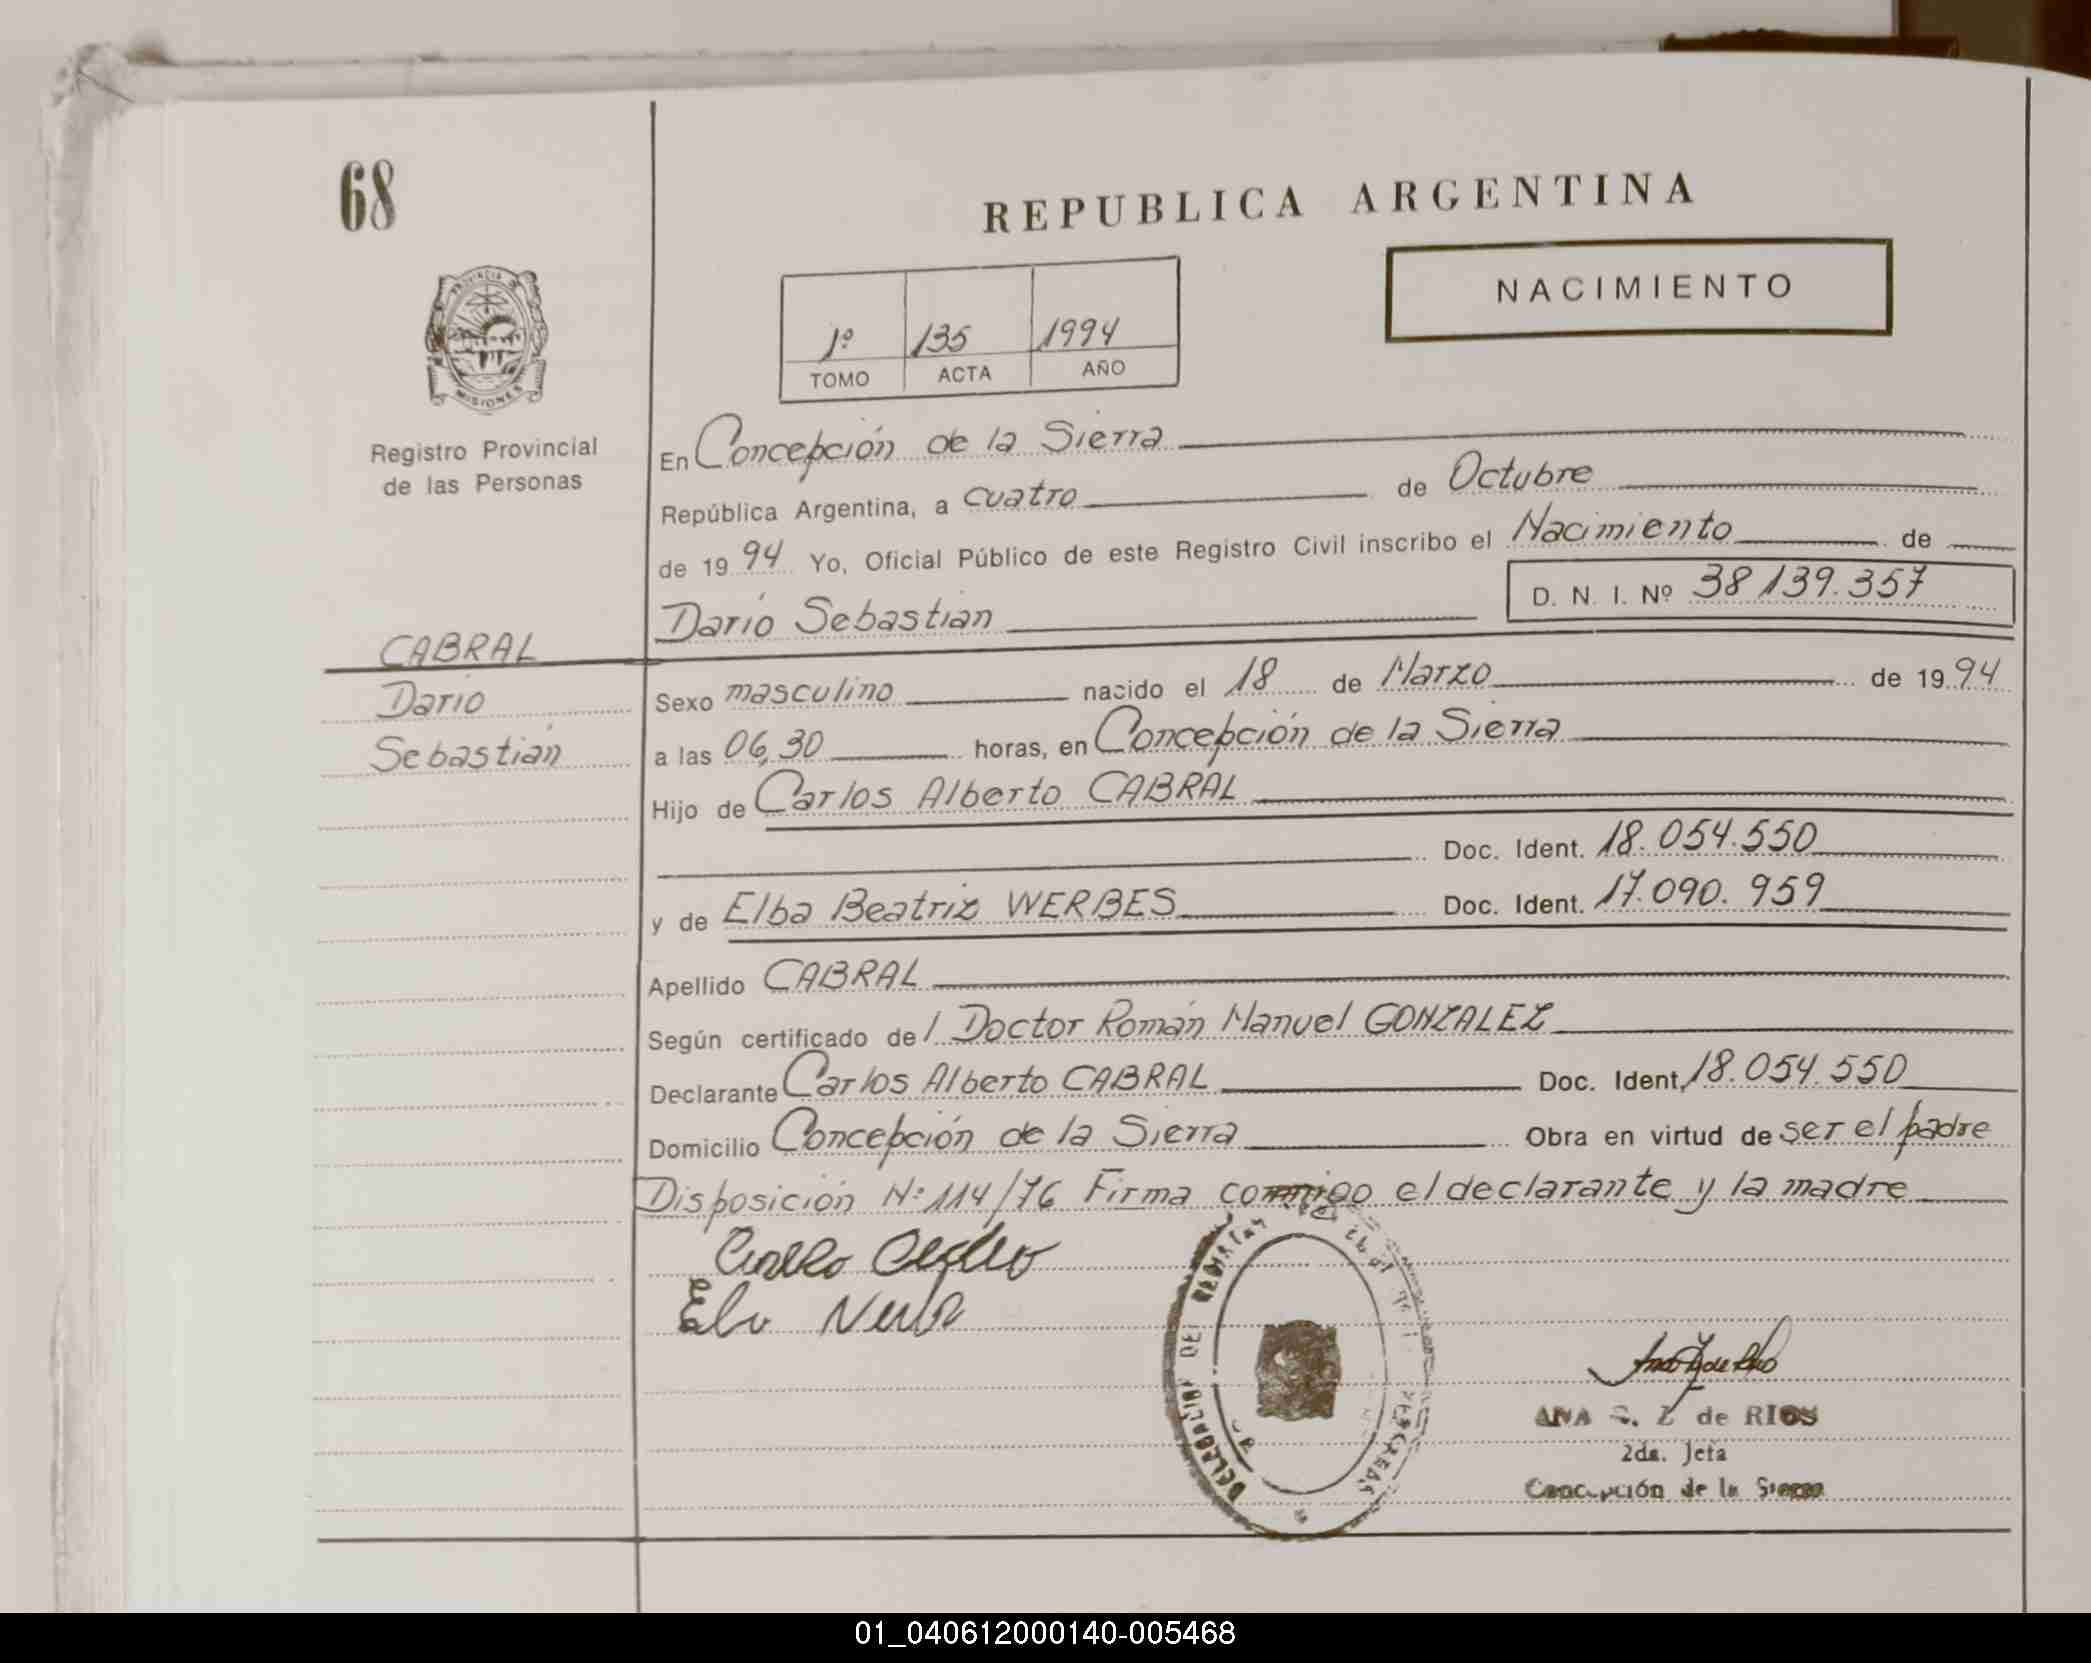 68
REPUBLICA ARGENTINA
NACIMIENTO
1º 135 1994
TOMO ACTA AÑO
PROVINCIA
MISIONES
Registro Provincial
de las Personas
En Concepción de la Sierra
República Argentina, a cuatro de Octubre
de 1994 Yo, Oficial Público de este Registro Civil inscribo el Nacimiento de
Darío Sebastián D. N. I. Nº 38139.357
CABRAL
Darío
Sebastián
Sexo masculino nacido el 18 de Marzo de 1994
a las 06,30 horas, en Concepción de la Sierra
Hijo de Carlos Alberto CABRAL
Doc. Ident. 18.054.550
y de Elba Beatriz WERBES Doc. Ident. 17.090.959
Apellido CABRAL
Según certificado del Doctor Román Manuel GONZALEZ
Declarante Carlos Alberto CABRAL Doc. Ident. 18.054.550
Domicilio Concepción de la Sierra Obra en virtud de ser el padre
Disposición Nº 114/76 Firma conmigo el declarante y la madre
DELEGACION DEL
ANA de RIOS
2da. Jefa
Concepción de la Sierra
01_040612000140-005468